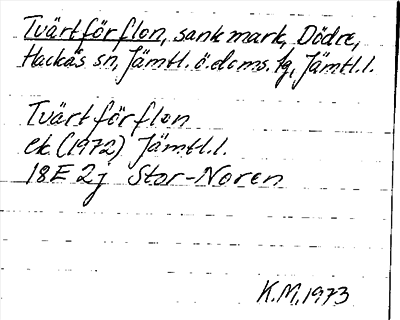 Tvärtförflon, sank mark, Dödre,
Hackås sn, Jämtl. ö. dcms. tg, Jämtl. l.
Tvärtförflon
ek. (1972) Jämtl. l.
18E 2j Stor-Noren
K.M. 1973